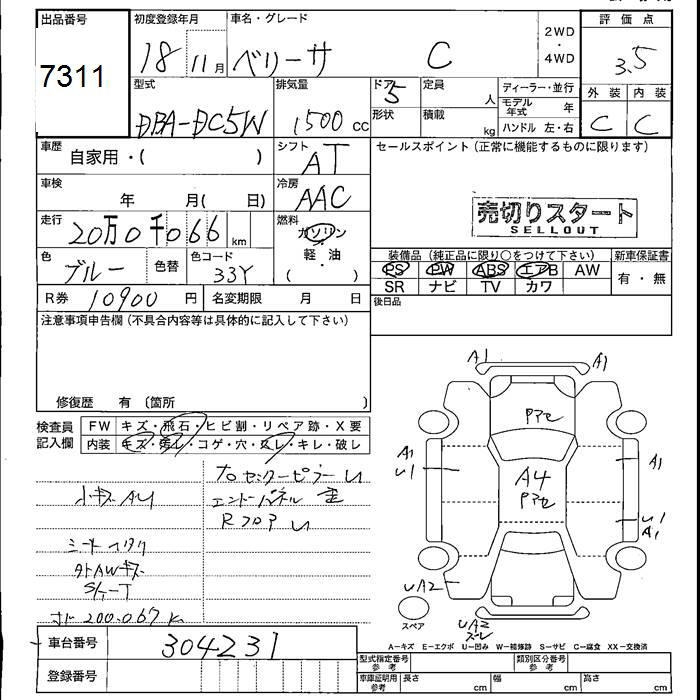 出品番号
7311
初度登録年月
18 11月
車名・グレード
ベリーサ C
2WD
・
4WD
評価点
3.5
外装 内装
C C
型式
DBA-DC5W
排気量
1500 cc
ドア
5
形状
定員
人
積載
kg
ディーラー・並行
モデル年式 年
ハンドル 左・右
車歴
自家用・( )
シフト
AT
車検
年 月( 日)
冷房
AAC
走行
20万0千066 km
燃料
ガソリン
軽・油
( )
色
ブルー
色替
色コード
33Y
R券 10900 円
名変期限 月 日
セールスポイント(正常に機能するものに限ります)
売切りスタート
SELLOUT
装備品(純正品に限り○をつけて下さい)
PS PW ABS エアB AW
SR ナビ TV カワ
新車保証書
有・無
後日品
注意事項申告欄(不具合内容等は具体的に記入して下さい)
修復歴 有(箇所 )
検査員
記入欄
FW キズ・飛石・ヒビ割・リペア跡・X要
内装 キズ・汚れ・コゲ・穴・スレ・キレ・破レ
小キズAU
シートヨゴレ
タトAWキズ
200.067K
センターピラーU
エンドパネル
RフロアU
A1
A1
A1
U1
A4
A1
U1
A1
UA2
UA2
スペア
A-キズ E-エクボ U-凹み W-補修跡 S-サビ C-腐食 XX-交換済
車台番号
304231
登録番号
型式指定番号
参考
類別区分番号
参考
車庫証明用
参考
長さ cm 幅 cm 高さ cm